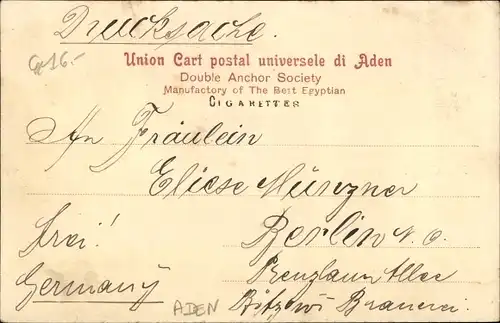 Drucksache.
Union Cart postal universele di Aden
Double Anchor Society
Manufactory of The Best Egyptian
CIGARETTES
An Fräulein
Eliese Münzner
Berlin N. O.
frei!
Prenzlauer Allee
Germany
Bötzow Brauerei.
ADEN